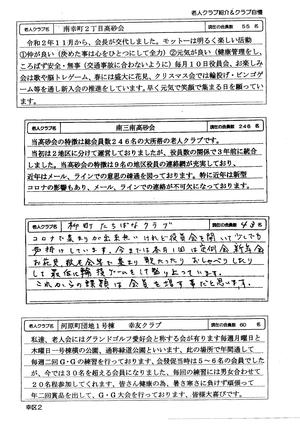 老人クラブ紹介&クラブ自慢
老人クラブ名 南幸町2丁目高砂会 現在の会員数 55名
令和2年11月から、会長が交代しました。モットーは明るく楽しい活動
①仲が良い（決めた事は心をひとつにして全力）②元気が良い（健康管理をし、
ころばず安全・無事（交通事故に合わないように）毎月10日役員会、お楽しみ
会は歌や脳トレゲーム、春には盛大に花見、クリスマス会では輪投げ・ビンゴゲ
ーム等を通し新入会の推進をしています。早く元気で集まる日まで頑張っていま
す。
老人クラブ名 南三南高砂会 現在の会員数 246名
当高砂会の特徴は総会員数246名の大所帯の老人クラブです。
当初は2地区に分けて運営しておりましたが、役員数の関係で3年前に統合
しました。当高砂会の特徴は9名の地区役員の連絡網が充実しており、
近年はメール、ラインでの意思の疎通を図っております。特に近年は新型
コロナの影響もあり、メール、ラインでの連絡が不可欠になっております。
老人クラブ名 柳町たちばなクラブ 現在の会員数 48名
コロナで集まりが出来ないけれど役員会を開いて少しでも
お花見
これからの課題は会員を増す事だと思います。
老人クラブ名 河原町団地1号棟 幸友クラブ 現在の会員数 60名
私達、老人会にはグランドゴルフ愛好会と称する会が有ります毎週月曜日と
木曜日一号棟横の公園、通称緑道公園といいます。此の場所で年間通して
毎週二回G・Gの練習を行っております、会発足当時は5〜6名の会員でした
が、今では30名を超える会員になりました、毎回の練習には男女合わせて
20名程参加してくれます。皆さん健康の為、暑さ寒さに負けず頑張って
年二回賞品を出して、G・G大会を行っております、皆様大喜びです。
幸区2